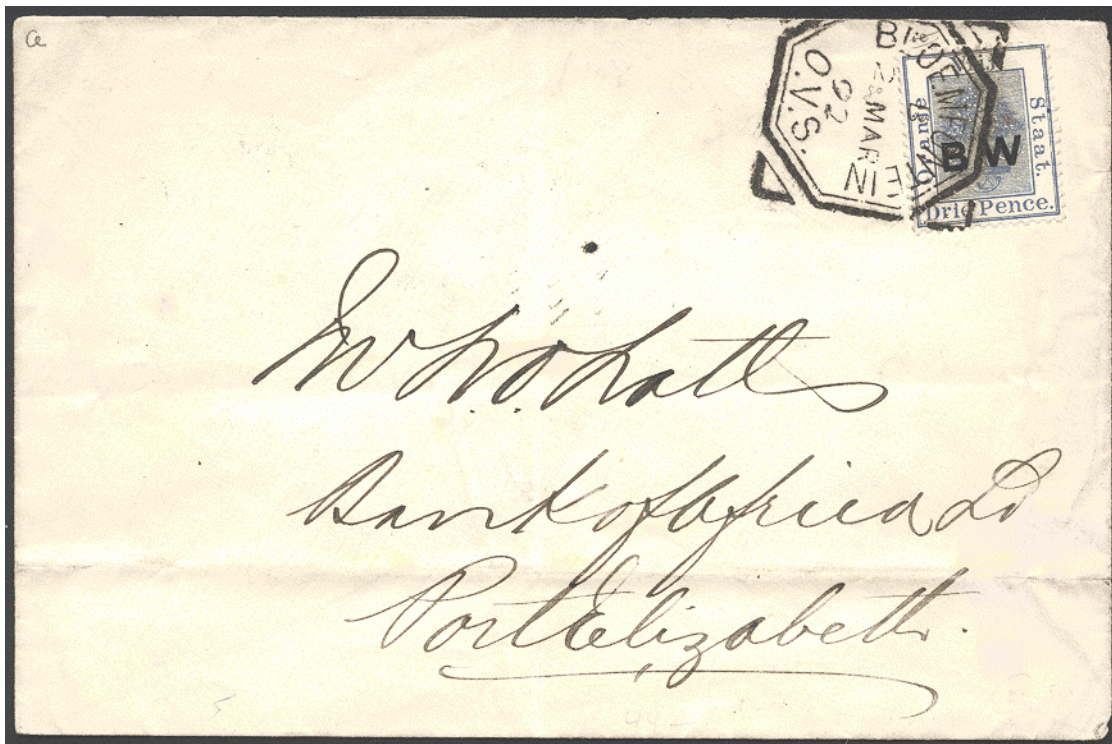 a
BLOEMFONTEIN
28 MAR
92
O.V.S.
Oranje Vrij Staat.
B W
Drie Pence.
Bank of Africa Ld
Port Elizabeth.